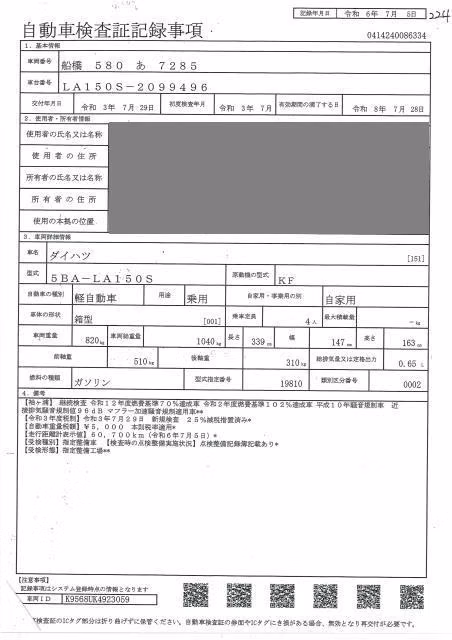 記録年月日 令和 6年 7月 5日
224
自動車検査証記録事項
0414240086334
1. 基本情報
車両番号 船橋 580 あ 7285
車台番号 LA150S-2099496
交付年月日 令和 3年 7月 29日 初度検査年月 令和 3年 7月 有効期間の満了する日 令和 8年 7月 28日
2. 使用者・所有者情報
使用者の氏名又は名称
使用者の住所
所有者の氏名又は名称
所有者の住所
使用の本拠の位置
3. 車両詳細情報
車名 ダイハツ [151]
型式 5BA-LA150S 原動機の型式 KF
自動車の種別 軽自動車 用途 乗用 自家用・事業用の別 自家用
車体の形状 箱型 [001] 乗車定員 4人 最大積載量 -kg
車両重量 820kg 車両総重量 1040kg 長さ 339cm 幅 147cm 高さ 163cm
前軸重 510kg 後軸重 310kg 総排気量又は定格出力 0.65L
燃料の種類 ガソリン 型式指定番号 19810 類別区分番号 0002
4. 備考
【袖ヶ浦】 継続検査 令和12年度燃費基準70%達成車 令和2年度燃費基準102%達成車 平成10年騒音規制車 近
接排気騒音規制値96dB マフラー加速騒音規制適用車**
【令和3年度税制】令和3年7月29日 新規検査 25%減税措置済み*
【自動車重量税額】¥5,000 本則税率適用*
【走行距離計表示値】60,700km(令和6年7月5日)*
【受検種別】指定整備車 【検査時の点検整備実施状況】点検整備記録簿記載あり*
【受検形態】指定整備工場**
【注意事項】
記録事項はシステム登録時点の情報となります
車両ID K9568UK4923059
検査証のICタグ部分は折り曲げずに保管ください。自動車検査証の券面やICタグにき損がある場合、無効となり再交付が必要です。